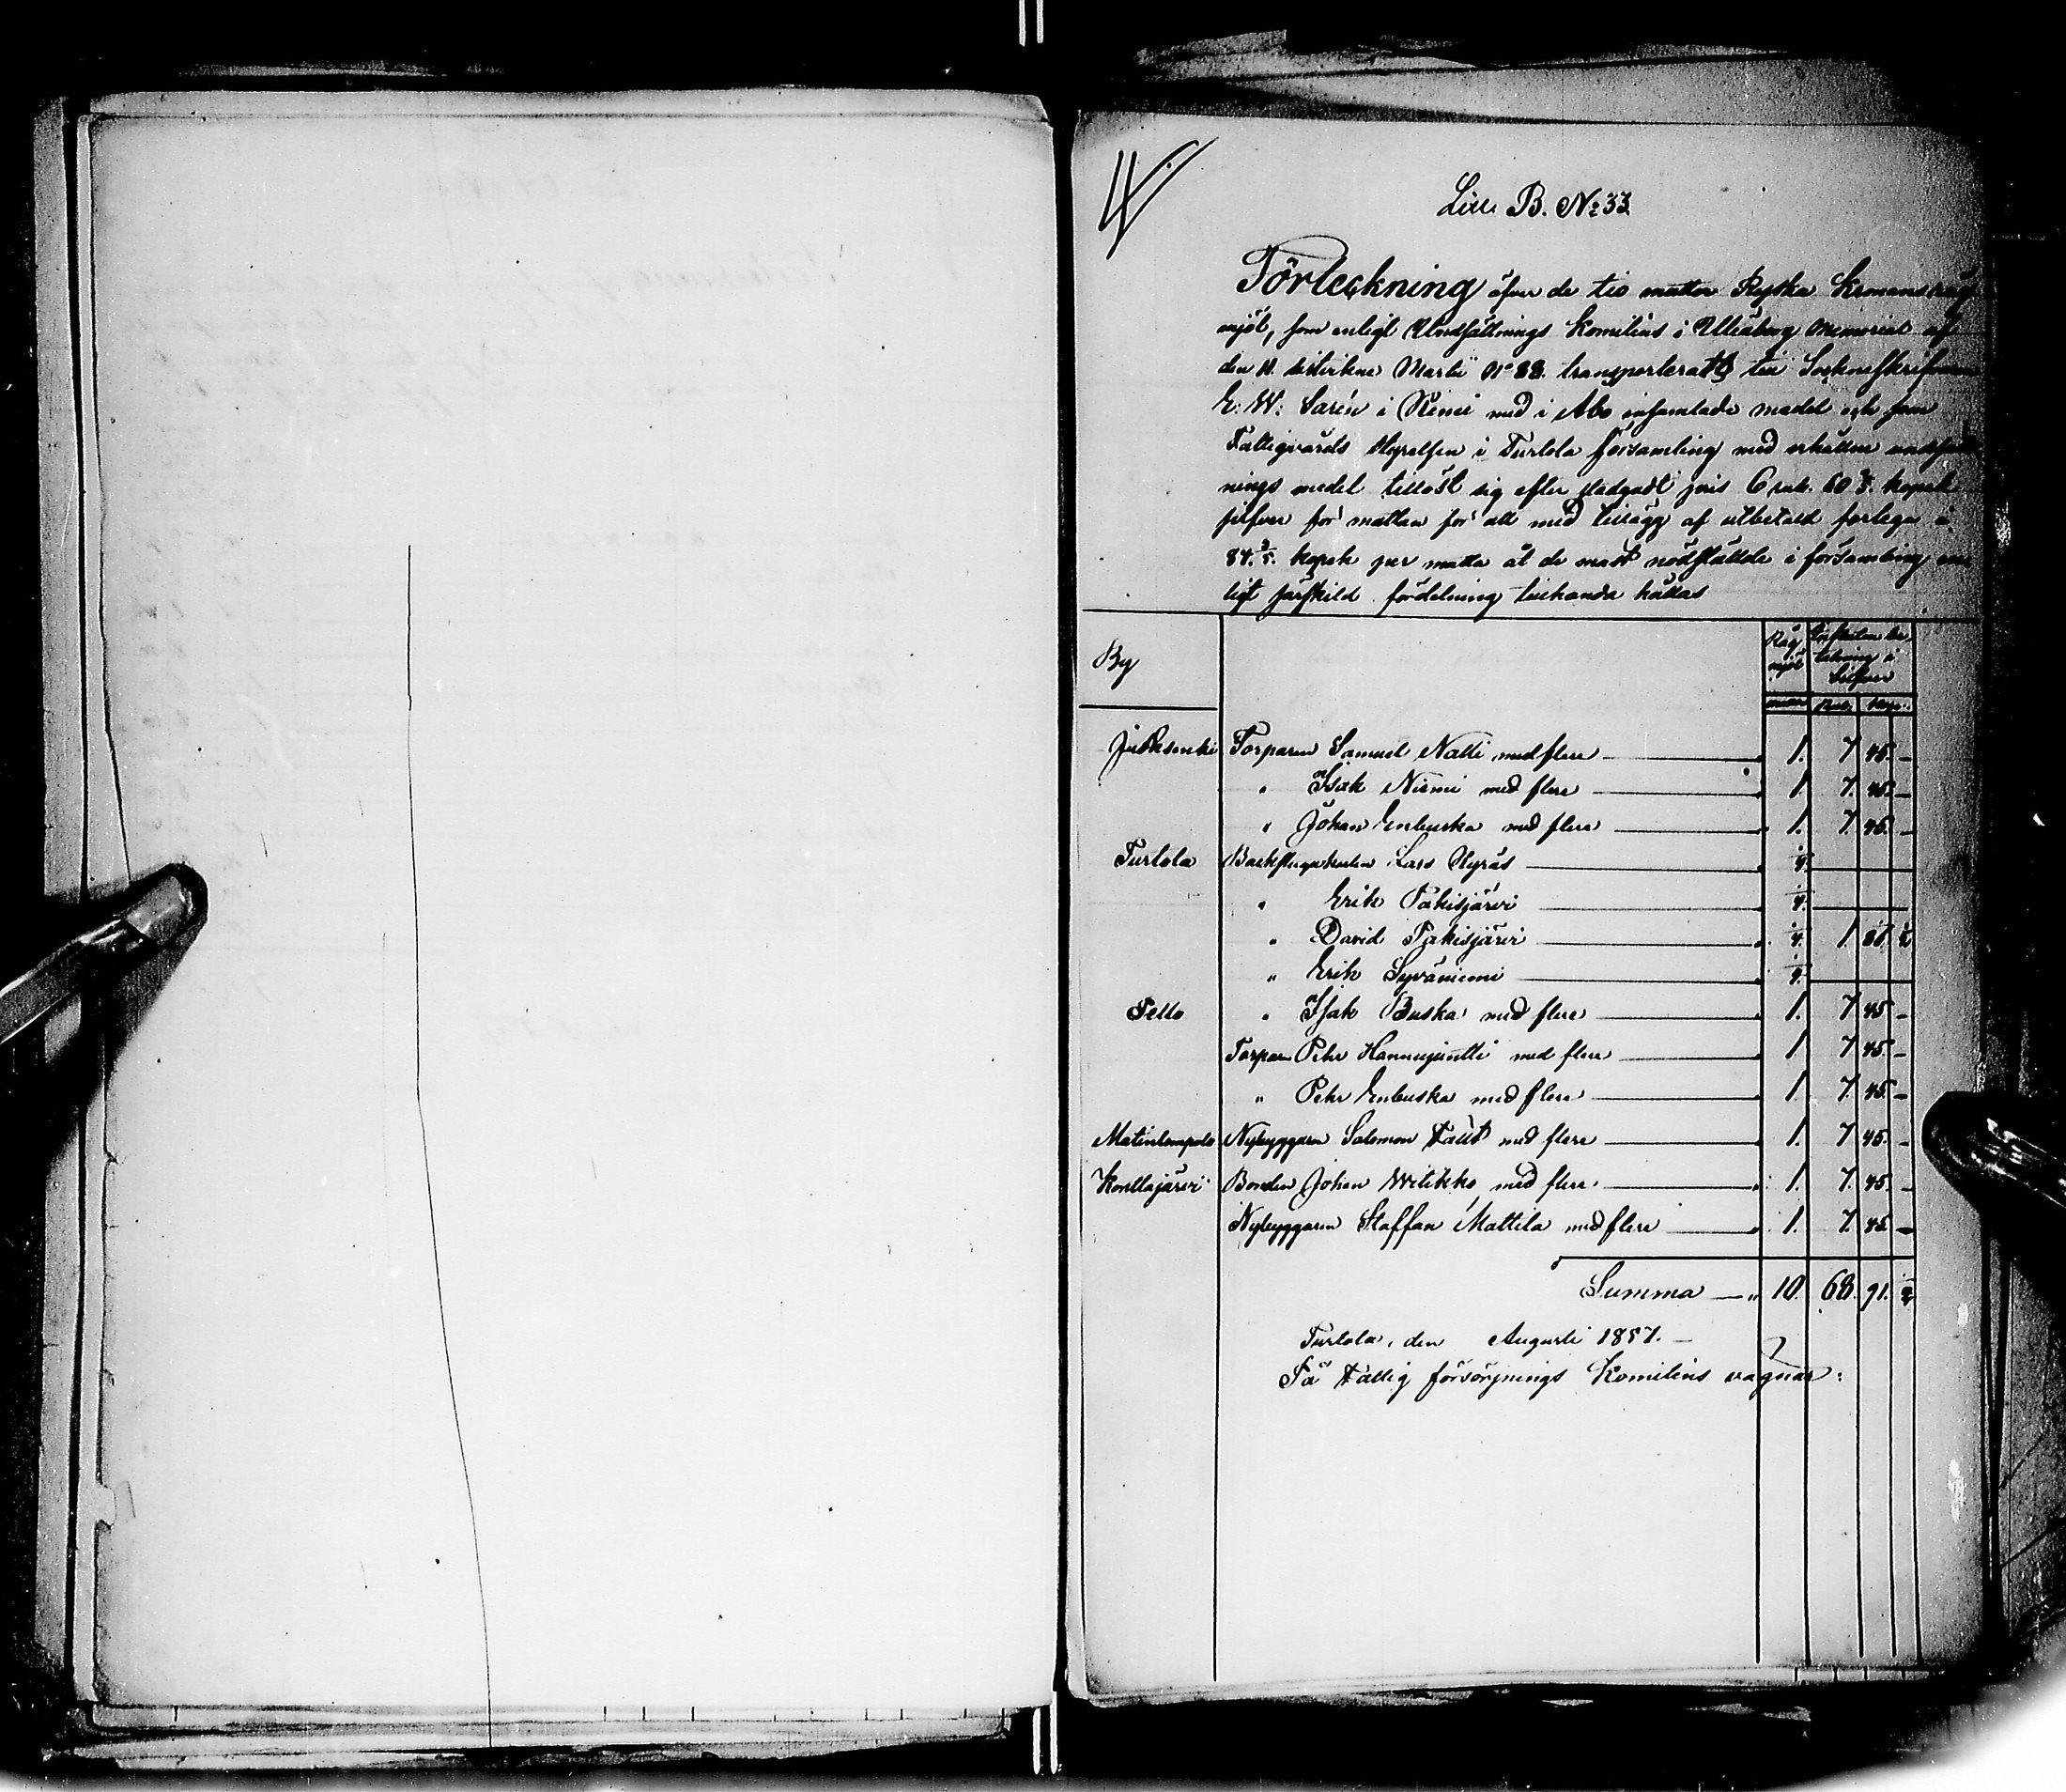 Litt. B. No 33
Förteckning öfver de tio mattor Ryska Kronans råg
mjöl, som enligt Undsättnings Komiténs i Uleåborg Memorial af
den 11. sistvikne Martii No 88. transporterats till Socknefkrifvaren
E. W. Sarén i Kemi med i Åbo insamlade medel och som
Fattigvårds Styrelsen i Turtola församling med erhållne undsätt
nings medel tillöst sig efter stadgadt pris 6 rub. 60 kopek
silfver för mattan för att med tillägg af utbetald förlega à
84 kopek per matta åt de mäst nödställde i församling en
ligt särskild fördelning tillhanda hållas
By Råg mjöl betalning i Silfver
mattor Rub. Kop.
Juoksenki Torparen Samuel Natti med flere 1. 7 45. –
" Isak Niemi med flere 1. 7. 45. –
" Johan Enbuska med flere 1. 7. 45. –
Turtola Lars Styräs 1/4.
" Erik Pakisjärvi 1/4.
" David Pakisjärvi 1/4. 1 81 1/2
" Erik Syväniemi 1/4.
Pello " Isak Buska med flere 1. 7 45 –
Torparen Pehr Hannujuntti med flere 1. 7 45. –
" Pehr Enbuska med flere 1. 7. 45. –
Matinlompolo Nybyggaren Salomon Fält med flere 1. 7 45. –
Konttajärvi Bonden Johan Wilikko med flere 1. 7. 45. –
Nybyggaren Staffan Mattila med flere 1. 7. 45. –
Summa 10. 68. 91.
Turtola, den Augusti 1857. –
På Fattig försörjnings Komiténs vägnar: